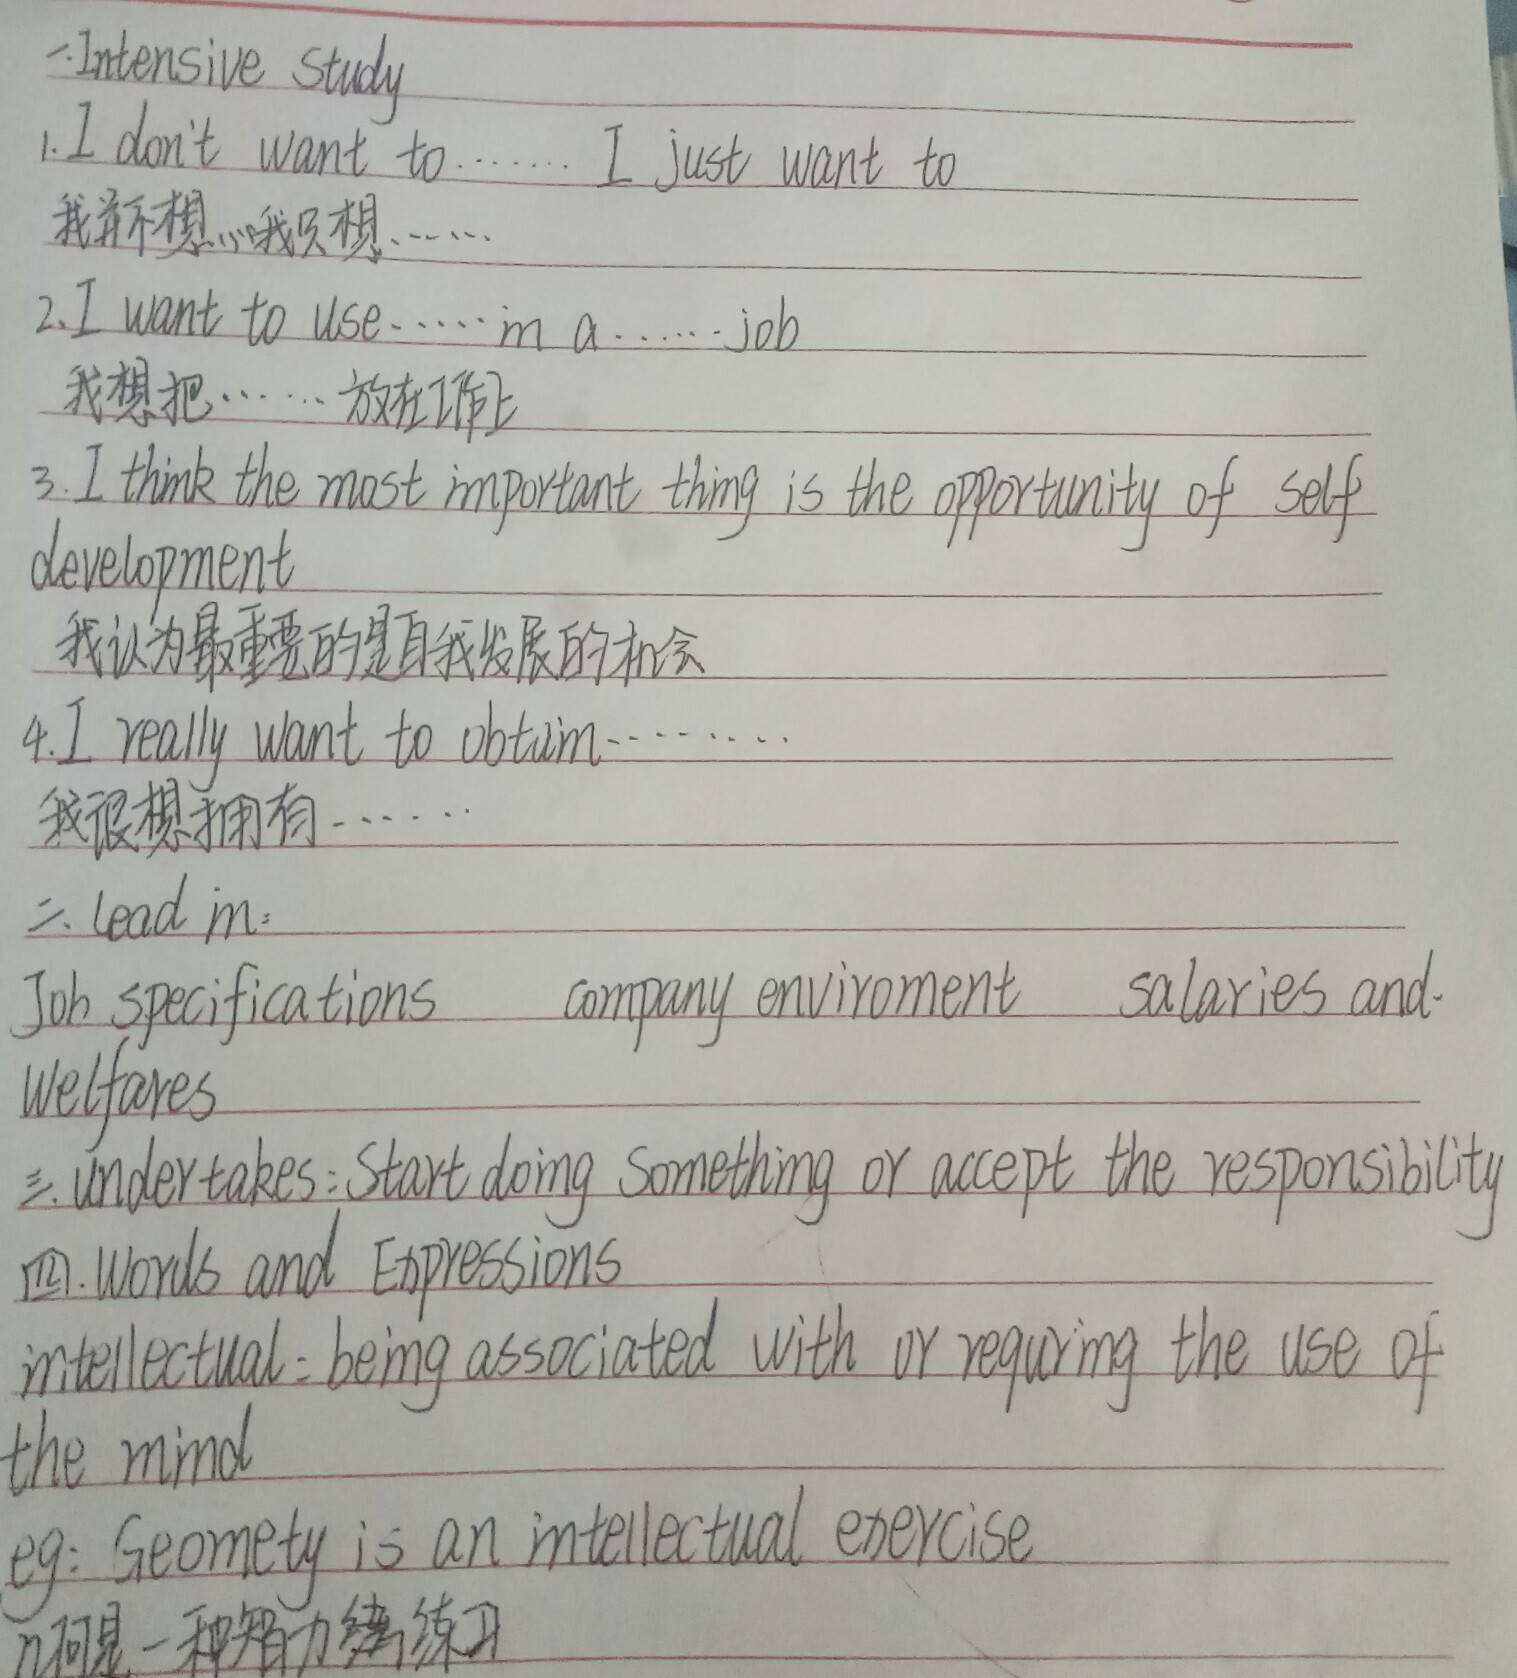 一.Intensive study
1.I don't want to....... I just want to
我并不想......我只想......
2.I want to use......in a......job
我想把......放在工作上
3.I think the most important thing is the opportunity of self
development
我认为最重要的是自我发展的机会
4.I really want to obtain.........
我很想拥有......
二.lead in:
Job specifications company enviroment salaries and
welfares
三.undertakes:Start doing something or accept the responsibility
四.Words and Expressions
intellectual:being associated with or requring the use of
the mind
eg: Geomety is an intellectual exercise
几何是一种智力练习